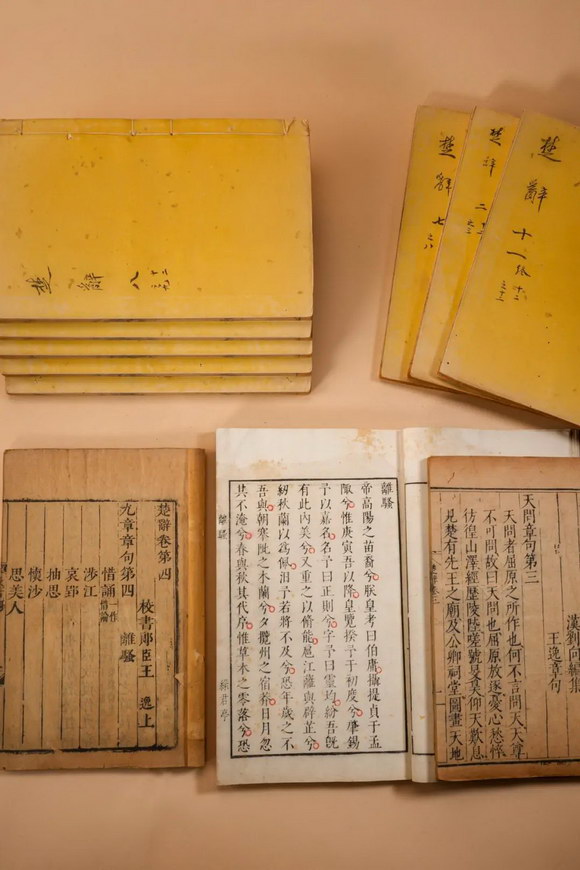 楚辭八
楚辭七
楚辞二
楚辭十一
楚辭卷第四
校書郎臣王 逸上
九章章句第四 離騷
惜誦一作惜論
涉江
哀郢
抽思
懷沙
思美人
離騷
帝高陽之苗裔兮朕皇考曰伯庸攝提貞于孟
陬兮惟庚寅吾以降皇覽揆予于初度兮肇錫
予以嘉名名予曰正則兮字予曰靈均紛吾既
有此内美兮又重之以脩能扈江離與辟芷兮
紉秋蘭以爲佩汨予若將不及兮恐年歲之不
吾與朝搴阰之木蘭兮夕攬州之宿莽日月忽
其不淹兮春與秋其代序惟草木之零落兮恐
離騷
綠君亭
天問章句第三
漢劉向編集
王逸章句
天問者屈原之所作也何不言問天天尊
不可問故曰天問也屈原放逐憂心愁悴
彷徨山澤經歷陵陸嗟號旻昊仰天歎息
見楚有先王之廟及公卿祠堂圖畫天地